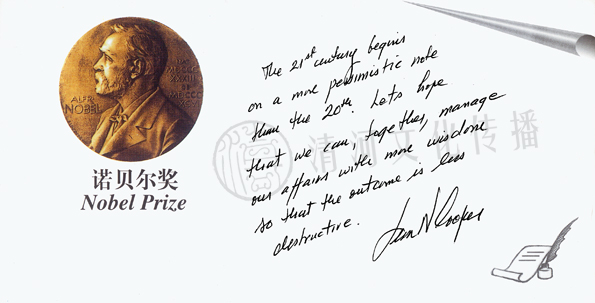 ALFR.
NOBEL
诺贝尔奖
Nobel Prize
The 21st century begins
on a more pessimistic note
than the 20th. Let's hope
that we can, together, manage
our affairs with more wisdom
so that the outcome is less
destructive.
Leon N Cooper
文化传播